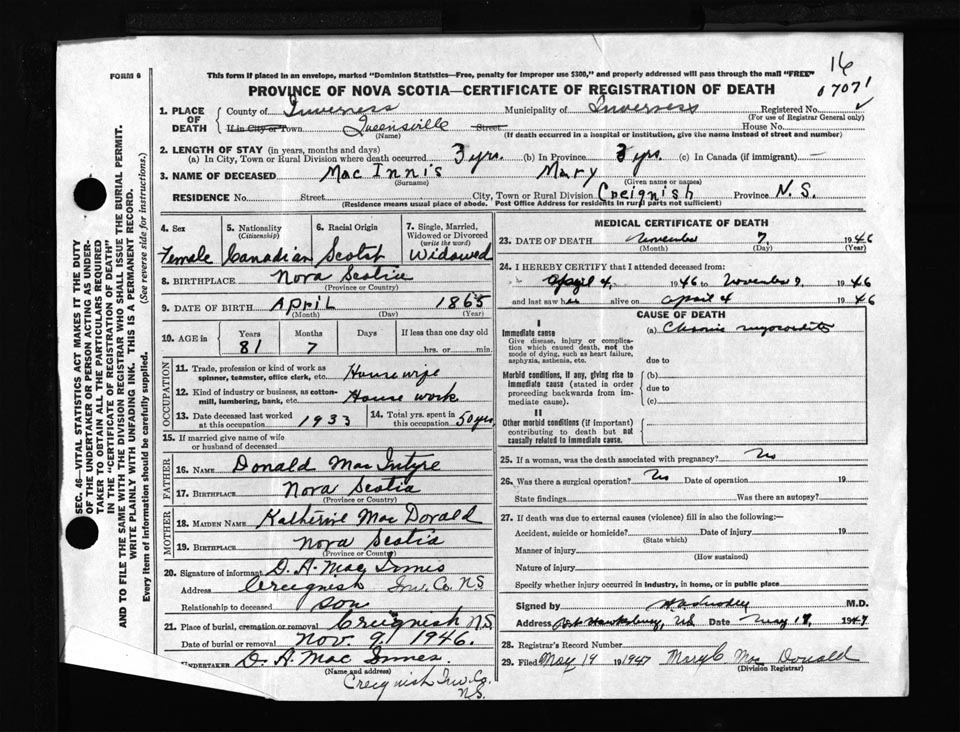 16
FORM 6
This form if placed in an envelope, marked "Dominion Statistics—Free, penalty for improper use $300," and properly addressed will pass through the mail "FREE"
07071
PROVINCE OF NOVA SCOTIA—CERTIFICATE OF REGISTRATION OF DEATH
1. PLACE OF DEATH
County of Inverness Municipality of Inverness Registered No.
(For use of Registrar General only)
If in City or Town Queensville Street House No.
(Name) (If death occurred in a hospital or institution, give the name instead of street and number)
2. LENGTH OF STAY (in years, months and days)
(a) In City, Town or Rural Division where death occurred 3 yrs. (b) In Province 3 yrs. (c) In Canada (if immigrant) —
3. NAME OF DECEASED Mac Innis Mary
(Surname) (Given name or names)
RESIDENCE No. Street City, Town or Rural Division Creignish Province N.S.
(Residence means usual place of abode. Post Office Address for residents in rural parts not sufficient)
4. Sex
Female
5. Nationality
(Citizenship)
Canadian
6. Racial Origin
Scotst
7. Single, Married, Widowed or Divorced
(write the word)
Widowed
8. BIRTHPLACE Nova Scotia
(Province or Country)
9. DATE OF BIRTH April 1865
(Month) (Day) (Year)
10. AGE in
Years Months Days If less than one day old
81 7 hrs. or min.
OCCUPATION
11. Trade, profession or kind of work as spinner, teamster, office clerk, etc. House wife
12. Kind of industry or business, as cotton-mill, lumbering, bank, etc. House work
13. Date deceased last worked at this occupation 1933
14. Total yrs. spent in this occupation 50 yrs
15. If married give name of wife or husband of deceased
FATHER
16. NAME Donald Mac Intyre
17. BIRTHPLACE Nova Scotia
(Province or Country)
MOTHER
18. MAIDEN NAME Katherine Mac Donald
19. BIRTHPLACE Nova Scotia
(Province or Country)
20. Signature of informant D. A. Mac Innes
Address Creignish Inv. Co. N.S.
Relationship to deceased son
21. Place of burial, cremation or removal Creignish N.S.
Date of burial or removal Nov. 9, 1946.
UNDERTAKER D. A. Mac Innes.
(Name and address)
Creignish Inv. Co.
N.S.
MEDICAL CERTIFICATE OF DEATH
23. DATE OF DEATH November 7, 1946
(Month) (Day) (Year)
24. I HEREBY CERTIFY that I attended deceased from:
April 4, 1946 to November 1946
and last saw her alive on April 4 1946
CAUSE OF DEATH
I
Immediate cause
Give disease, injury or complication which caused death, not the mode of dying, such as heart failure, asphyxia, asthenia, etc.
(a) Chronic myocarditis
due to
Morbid conditions, if any, giving rise to immediate cause (stated in order proceeding backwards from immediate cause).
(b)
due to
(c)
II
Other morbid conditions (if important) contributing to death but not causally related to immediate cause.
25. If a woman, was the death associated with pregnancy? No
26. Was there a surgical operation? No Date of operation 19
State findings Was there an autopsy?
27. If death was due to external causes (violence) fill in also the following:—
Accident, suicide or homicide? Date of injury 19
(State which)
Manner of injury
(How sustained)
Nature of injury
Specify whether injury occurred in industry, in home, or in public place
Signed by M.D.
Address Pt Hawksbury, NS Date May 18, 1947
28. Registrar's Record Number
29. Filed May 19 1947 Mary C. Mac Donald
(Division Registrar)
SEC. 46—VITAL STATISTICS ACT MAKES IT THE DUTY
OF THE UNDERTAKER OR PERSON ACTING AS UNDERTAKER TO OBTAIN ALL THE PARTICULARS REQUIRED
IN THE "CERTIFICATE OF REGISTRATION OF DEATH"
AND TO FILE THE SAME WITH THE DIVISION REGISTRAR WHO SHALL ISSUE THE BURIAL PERMIT.
WRITE PLAINLY WITH UNFADING INK. THIS IS A PERMANENT RECORD.
Every item of Information should be carefully supplied. (See reverse side for instructions.)